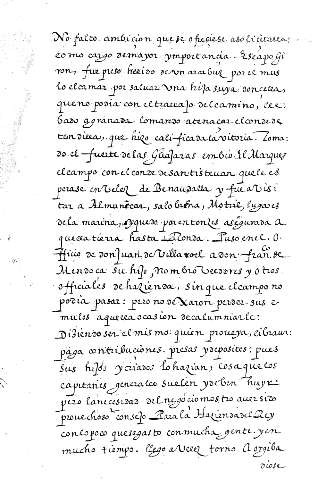 No falto ambicion que se ofreciese a solicitarla:
como cargo demayor ymportançia. Escapo Gi
ron, fue preso herido de un arcabuz por el mus
lo el camar por saluar vna hija suya donçella,
que no podia con el trauajo del camino, lle
bado a granada lo mando atenacear el conde de
tendilla, que hizo calificada la vitoria. Toma
do el fuerte de las Guajaras embio El Marques
el campo con el conde de santisteuan que le es
perase en Velez de Benaudalla y fue a visi
tar a Almuñecar, salobreña, Motril, lugares
de la marina, y quedo por entonzes asegurada a
questa tierra hasta la Ronda. Puso en el O
ffiçio de don Juan de Villaroel a don fran.co de
Mendoça su hijo, Nombro Veedores y otros
officiales de hazienda, sin que el campo no
podia pasar: pero no dexaron perder sus e
mulos aquella ocasion de calumniarle:
Diziendo ser el mismo quien proueya, libraua:
paga contribuciones, presas y depositos; pues
sus hijos y criados lo hazian, cosa que los
capitanes generales suelen y deben huyr
pero la necesidad del negoçio mostro auer sido
prouechoso consejo Para la Hazienda del Rey
con lo poco que se gasto con mucha gente y en
mucho tiempo. llego a Velez torno A orgiba
diose